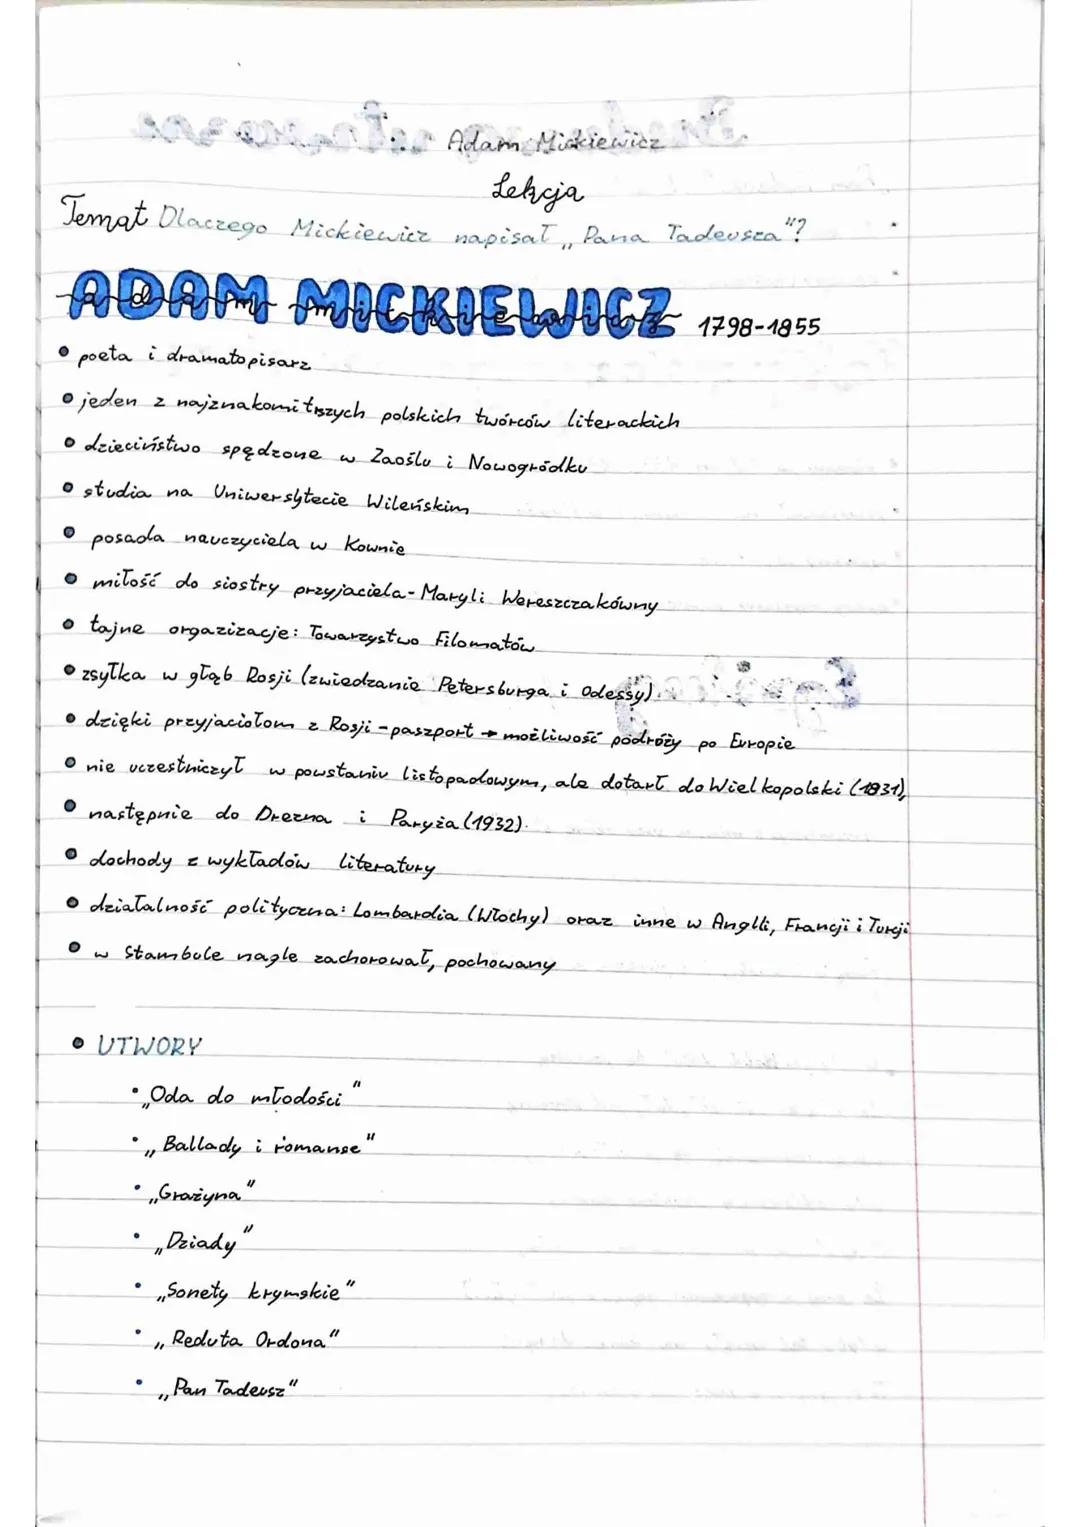 Adam Mickiewicz
Lekcja
Temat Dlaczego Mickiewicz napisał „Pana Tadeusza"?
ADAM MICKIEWICZ 1798-1855
adam mickiewicz
• poeta i dramatopisarz
• jeden z najznakomitszych polskich twórców literackich
• dzieciństwo spędzone w Zaoślu i Nowogródku
• studia na Uniwersytecie Wileńskim
• posada nauczyciela w Kownie
• miłość do siostry przyjaciela - Maryli Wereszczakówny
• tajne orgazizacje: Towarzystwo Filomatów
• zsyłka w głąb Rosji (zwiedzanie Petersburga i Odessy)
• dzięki przyjaciołom z Rosji - paszport → możliwość podróży po Europie
• nie uczestniczył w powstaniu listopadowym, ale dotarł do Wielkopolski (1831),
• następnie do Drezna i Paryża (1932).
• dochody z wykładów literatury
• działalność polityczna: Lombardia (Włochy) oraz inne w Anglii, Francji i Turcji
• w Stambule nagle zachorował, pochowany
• UTWORY
• „Oda do młodości"
• „Ballady i romanse"
• „Grażyna"
• „Dziady"
• „Sonety krymskie"
• „Reduta Ordona"
• „Pan Tadeusz"